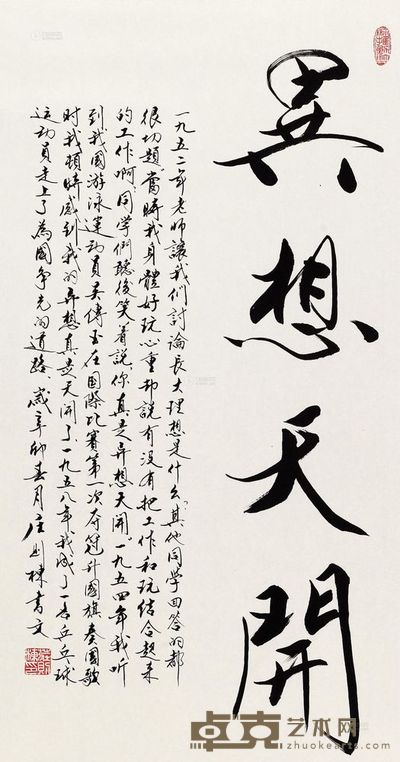 異想天開
一九五二年老師讓我们討論長大理想是什么。其他同学回答的都
很切題當時我身體好玩心重却說有没有把工作和玩结合起来
的工作啊同学們聽後笑着說你真是异想天開。一九五四年我听
到我國游泳運动員吴傳玉在国際比赛第一次夺冠升國旗奏國歌
时我頓時感到我的异想真是天開了一九五八年我成了一名乒乓球
运动員走上了為國争光的道路。歲辛卯春月庄则棟書文
卓克艺术网
www.zhuokearts.com